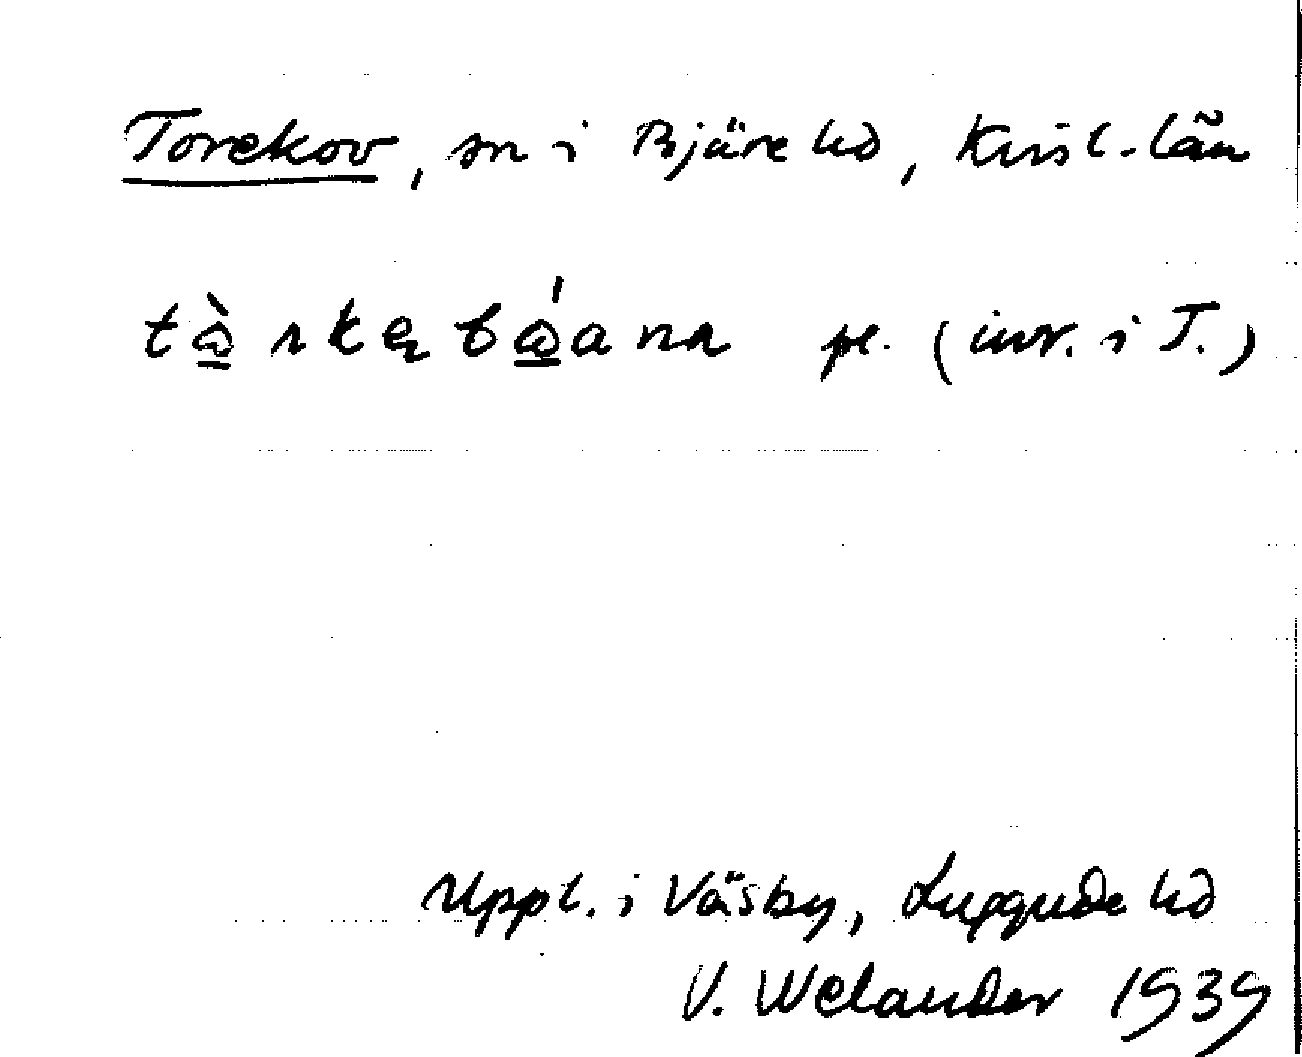 Torekov, sn i Bjäre hd, Krist-län
tàrkębáana pl. (inv. i T.)
Uppl. i Väsby, Luggude hd
V. Welander 1939